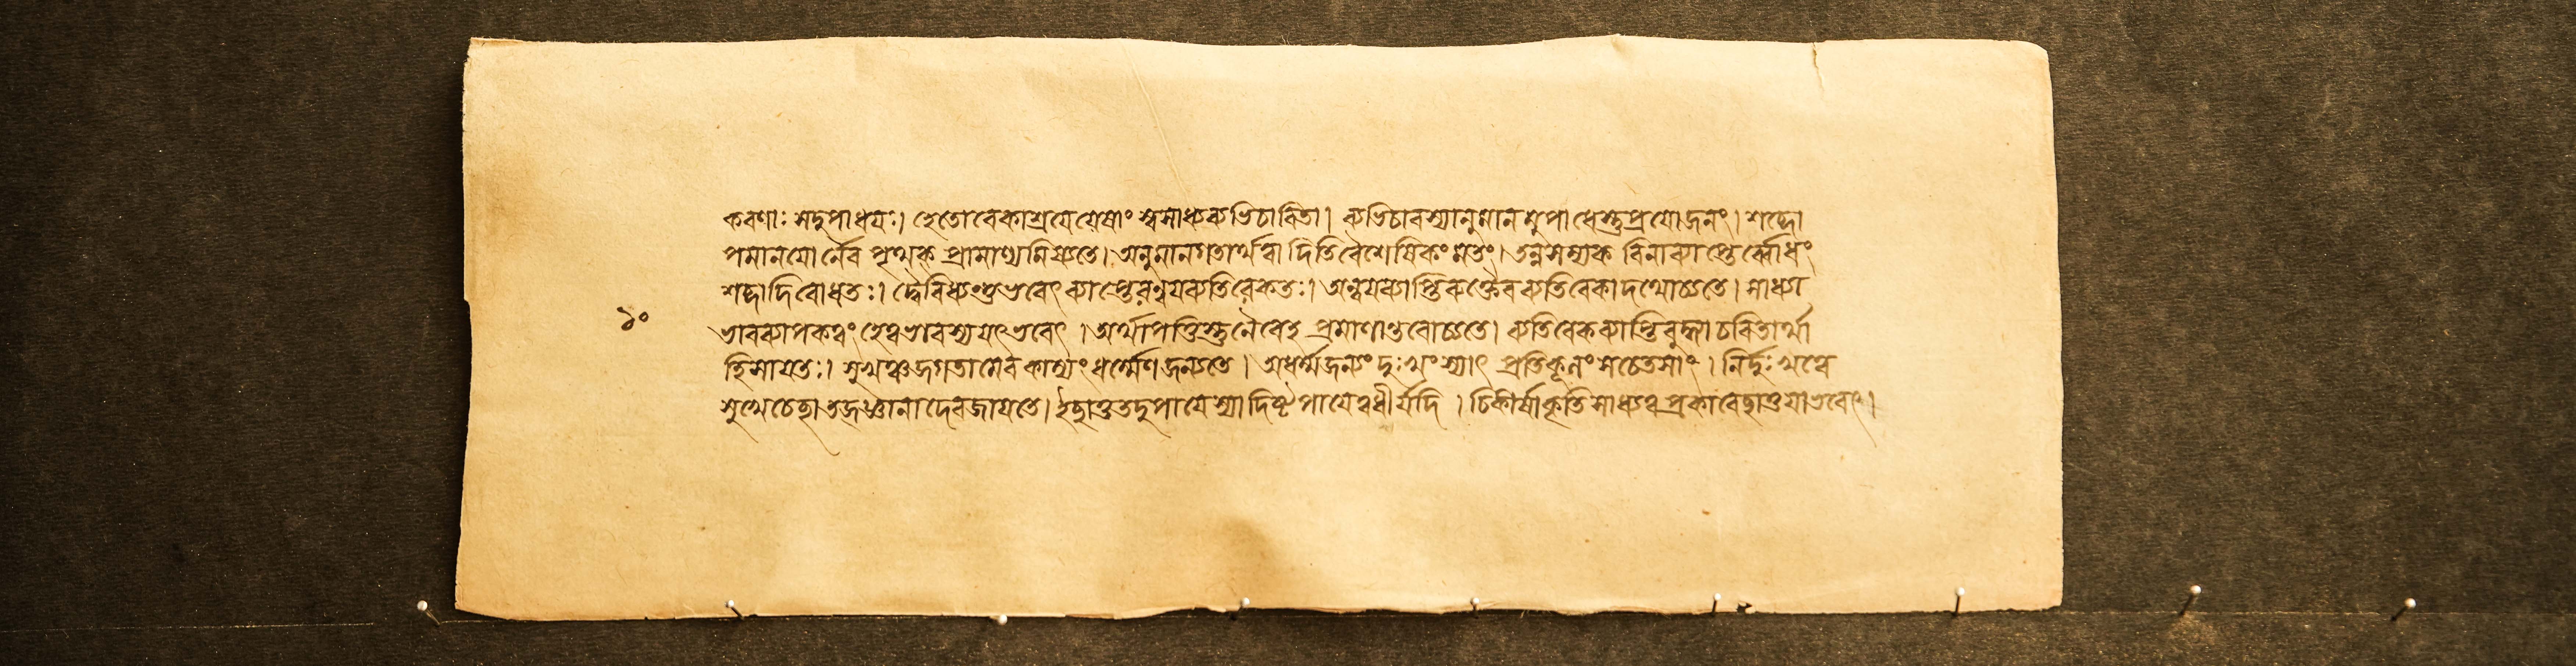 করণাঃ সদুপাধয়ঃ। হেতোরেকাশ্রয়ে যেষাং স্বসাধ্যব্যভিচারিতা। ব্যভিচারস্যানুমানমুপাধেস্তু প্রয়োজনং। শব্দো
পমানয়োর্নৈব পৃথক্ প্রামাণ্যমিষ্যতে। অনুমানগতার্থত্বাদিতি বৈশেষিকং মতং। তন্ন সম্যক্ বিনা ব্যাপ্তের্ব্বোধং
শব্দাদিবোধতঃ। দ্বৈবিধ্যন্তু ভবেৎ ব্যাপ্তেরন্বয়ব্যতিরেকতঃ। অন্বয়ব্যাপ্তিরুক্তৈব ব্যতিরেকাদথোচ্যতে। সাধ্যা
১০ ভাবব্যাপকত্বং হেত্বভাবস্য যৎ ভবেৎ । অর্থাপত্তিস্তু নৈবেহ প্রমাণান্তরোচ্যতে। ব্যতিরেকব্যাপ্তিবুদ্ধ্যা চরিতার্থা
হি সা যতঃ। সুখঞ্চ জগতামেব কাম্যং ধর্ম্মেণ জন্যতে । অধর্ম্মজন্যং দুঃখং স্যাৎ প্রতিকূলং সচেতসাং । নির্দুঃখত্বে
সুখে চেচ্ছা তজ্জ্ঞানাদেব জায়তে। ইচ্ছা তু তদুপায়ে স্যাদিষ্টোপায়ত্বধীর্যদি । চিকীর্ষা কৃতিসাধ্যত্বপ্রকারেচ্ছা তু যা ভবেৎ।